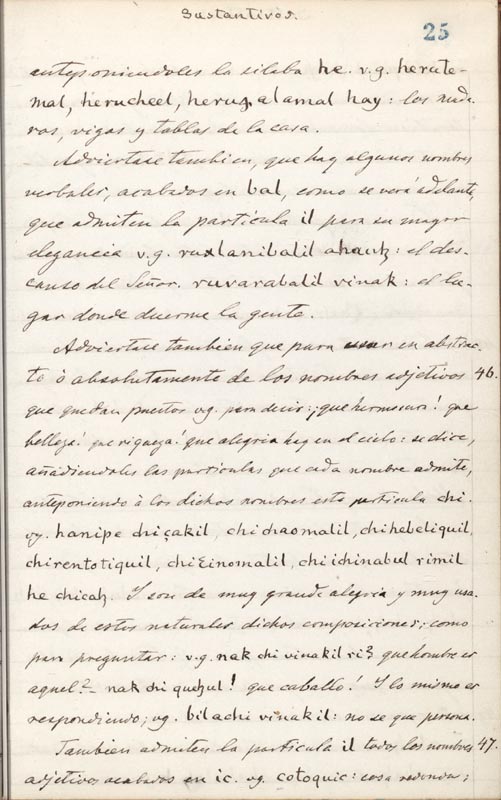 Sustantivos.
25
anteponiendoles la silaba he. v.g. herate-
mal, herucheel, heruꜩalamal hay: los made-
ros, vigas y tablas de la casa.
Adviertase tambien, que hay algunos nombres
verbales, acabados en bal, como se verá adelante,
que admiten la particula il para su mayor
elegancia v.g. ruxlanibalil ahauh: el des-
canso del Señor. ruvarabalil vinak: el lu-
gar donde duerme la gente.
Adviertase tambien que para usar en abstrac-
to ò absolutamente de los nombres adjetivos 46.
que quedan puestos vg. para decir: ¡que hermosura! que
belleza! que riqueza! que alegria hay en el cielo: se dice,
añadiendoles las particulas que cada nombre admite,
anteponiendo à los dichos nombres esta particula chi.
vg. hanipe chiçakil, chichaomalil, chihebeliquil,
chirentotiquil, chiεinomalil, chiichinabul rimil
he chicah. Y son de muy grande alegria y muy usa-
dos de estos naturales dichas composiciones; como
para preguntar: v.g. nak chi vinakil ri? que hombre es
aquel? nak chi quehul! que caballo! Y lo mismo es
respondiendo; vg. bilachi vinakil: no se que persona.
Tambien admiten la particula il todos los nombres 47.
adjetivos acabados en ic. vg. cotoquic: cosa redonda;